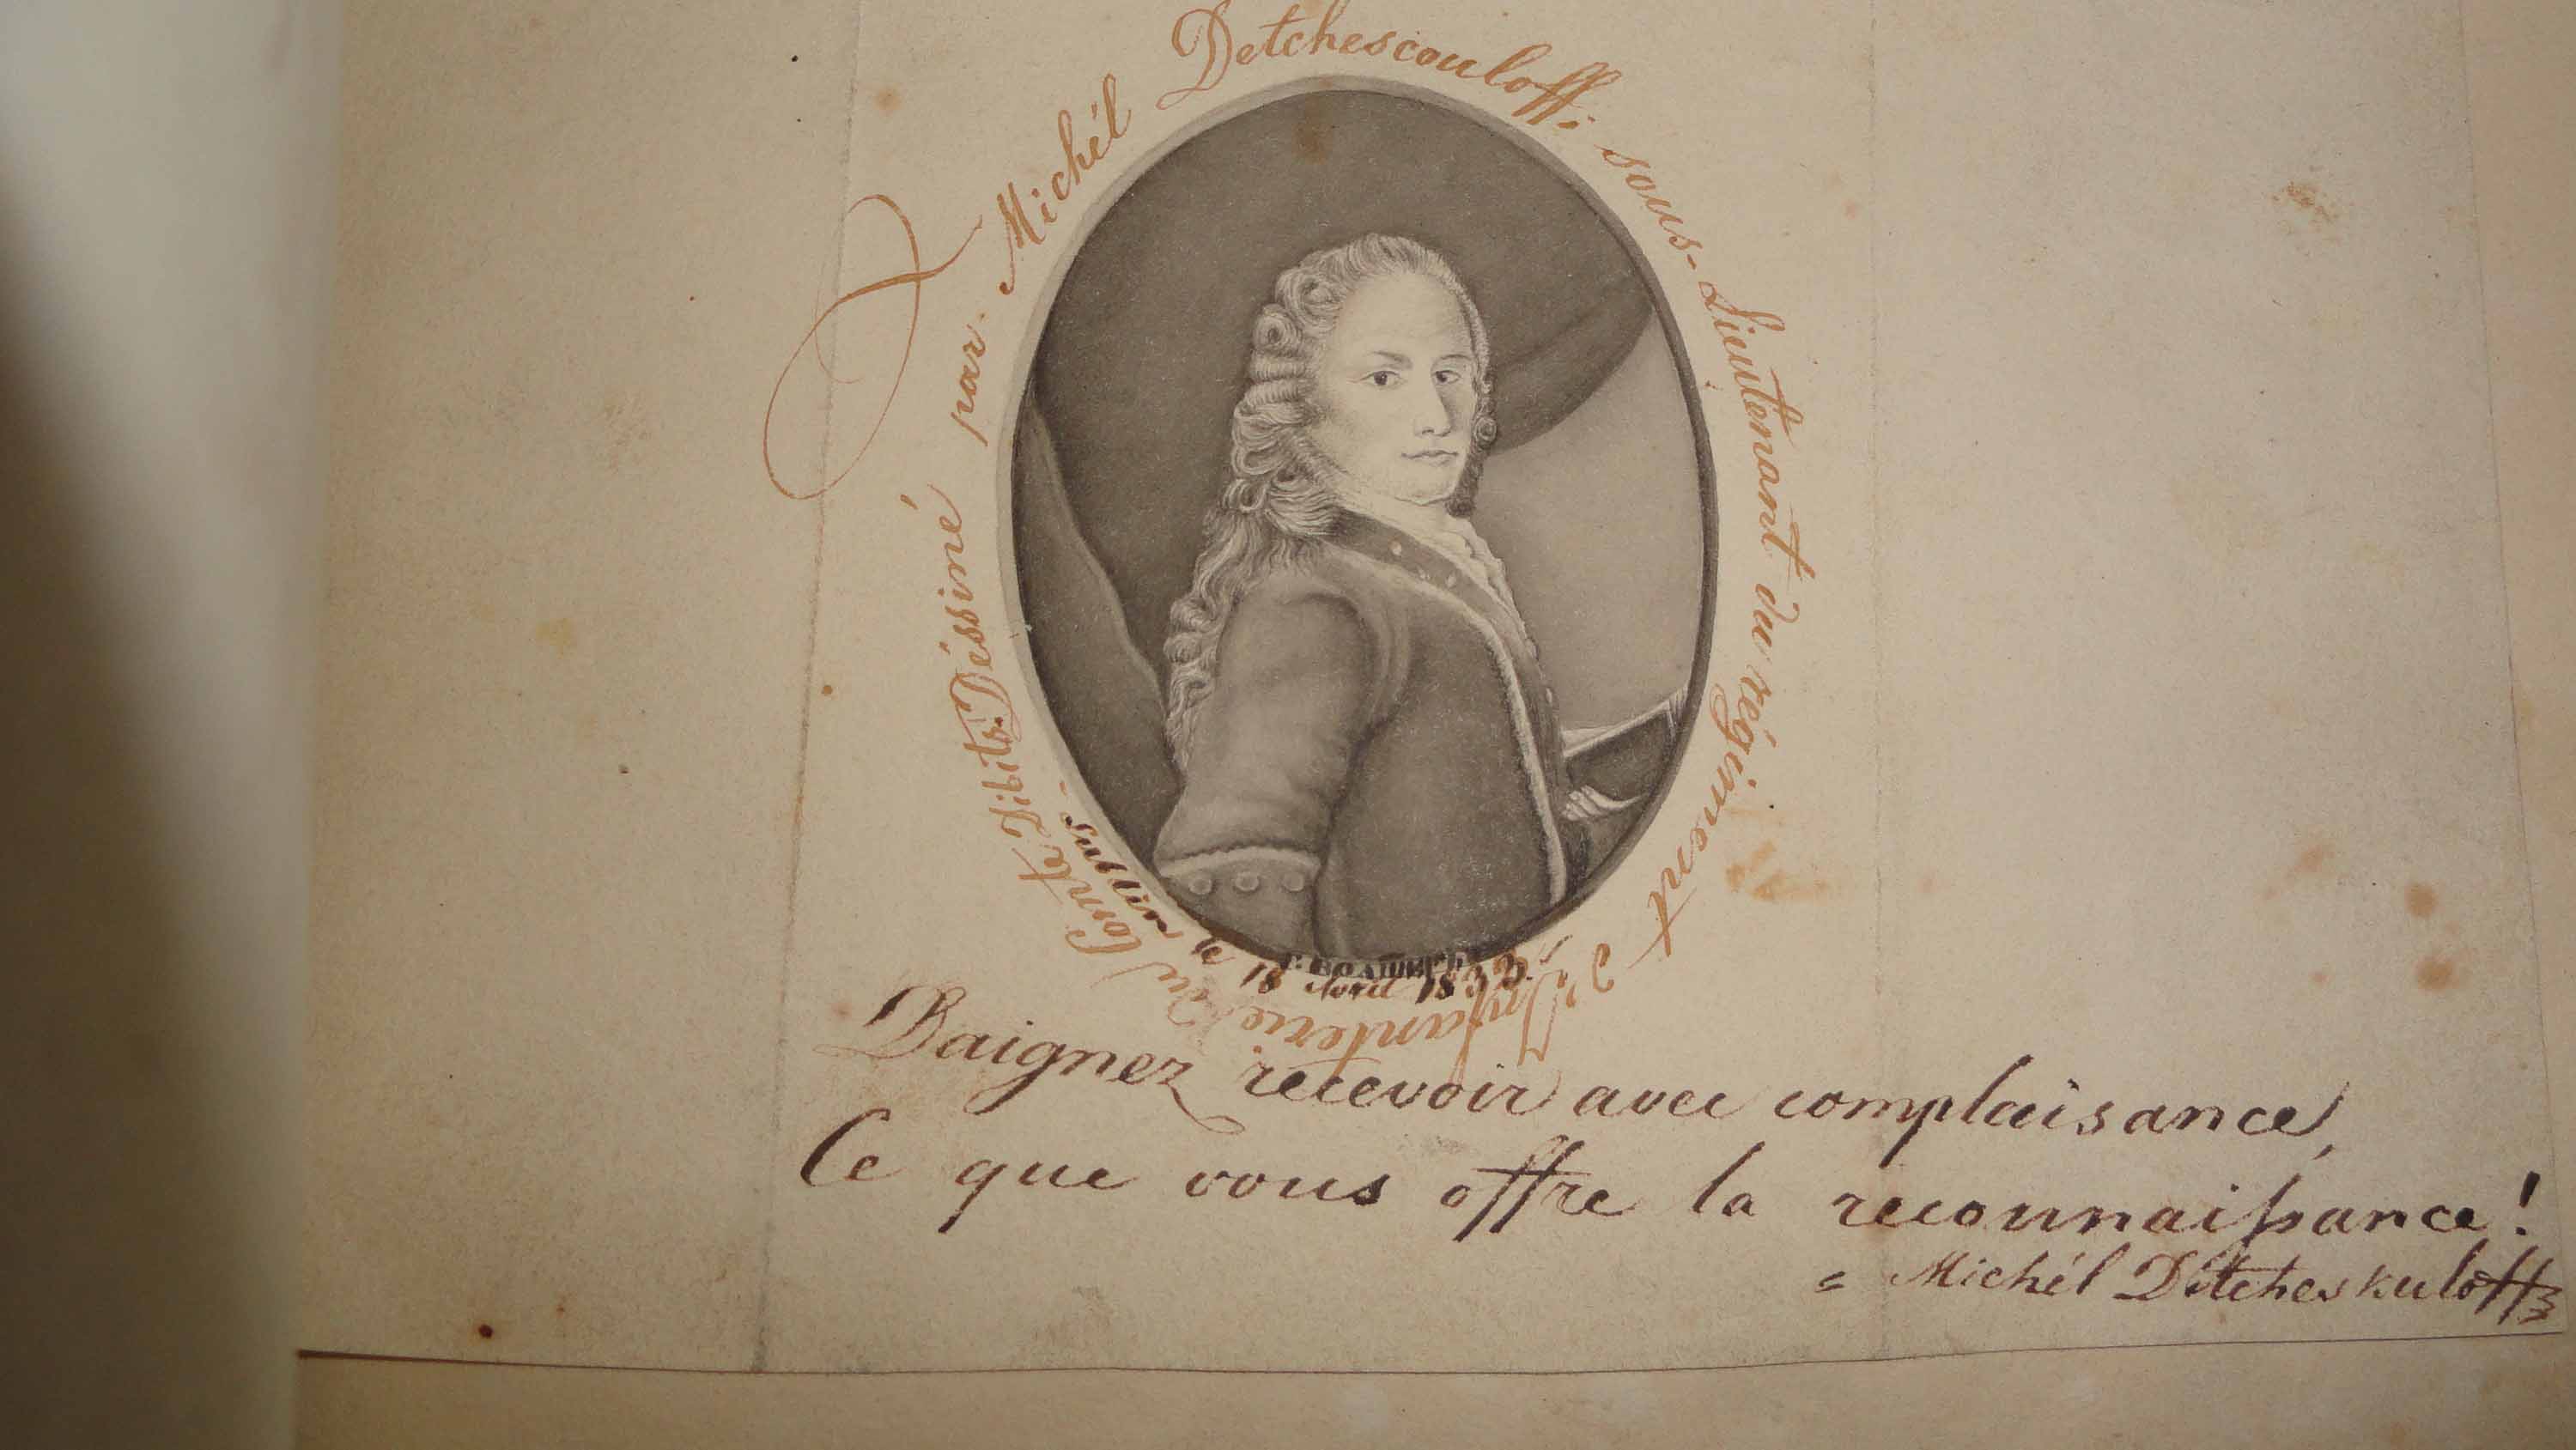 Déssiné par. Michél Detchescouloff, sous-Lieutenant du régiment d'Infanterie du Comte
Lublin le 18 Avril 1833.
Daignez recevoir avec complaisance,
Ce que vous offre la reconnaissance!
= Michél Ditcheskuloff